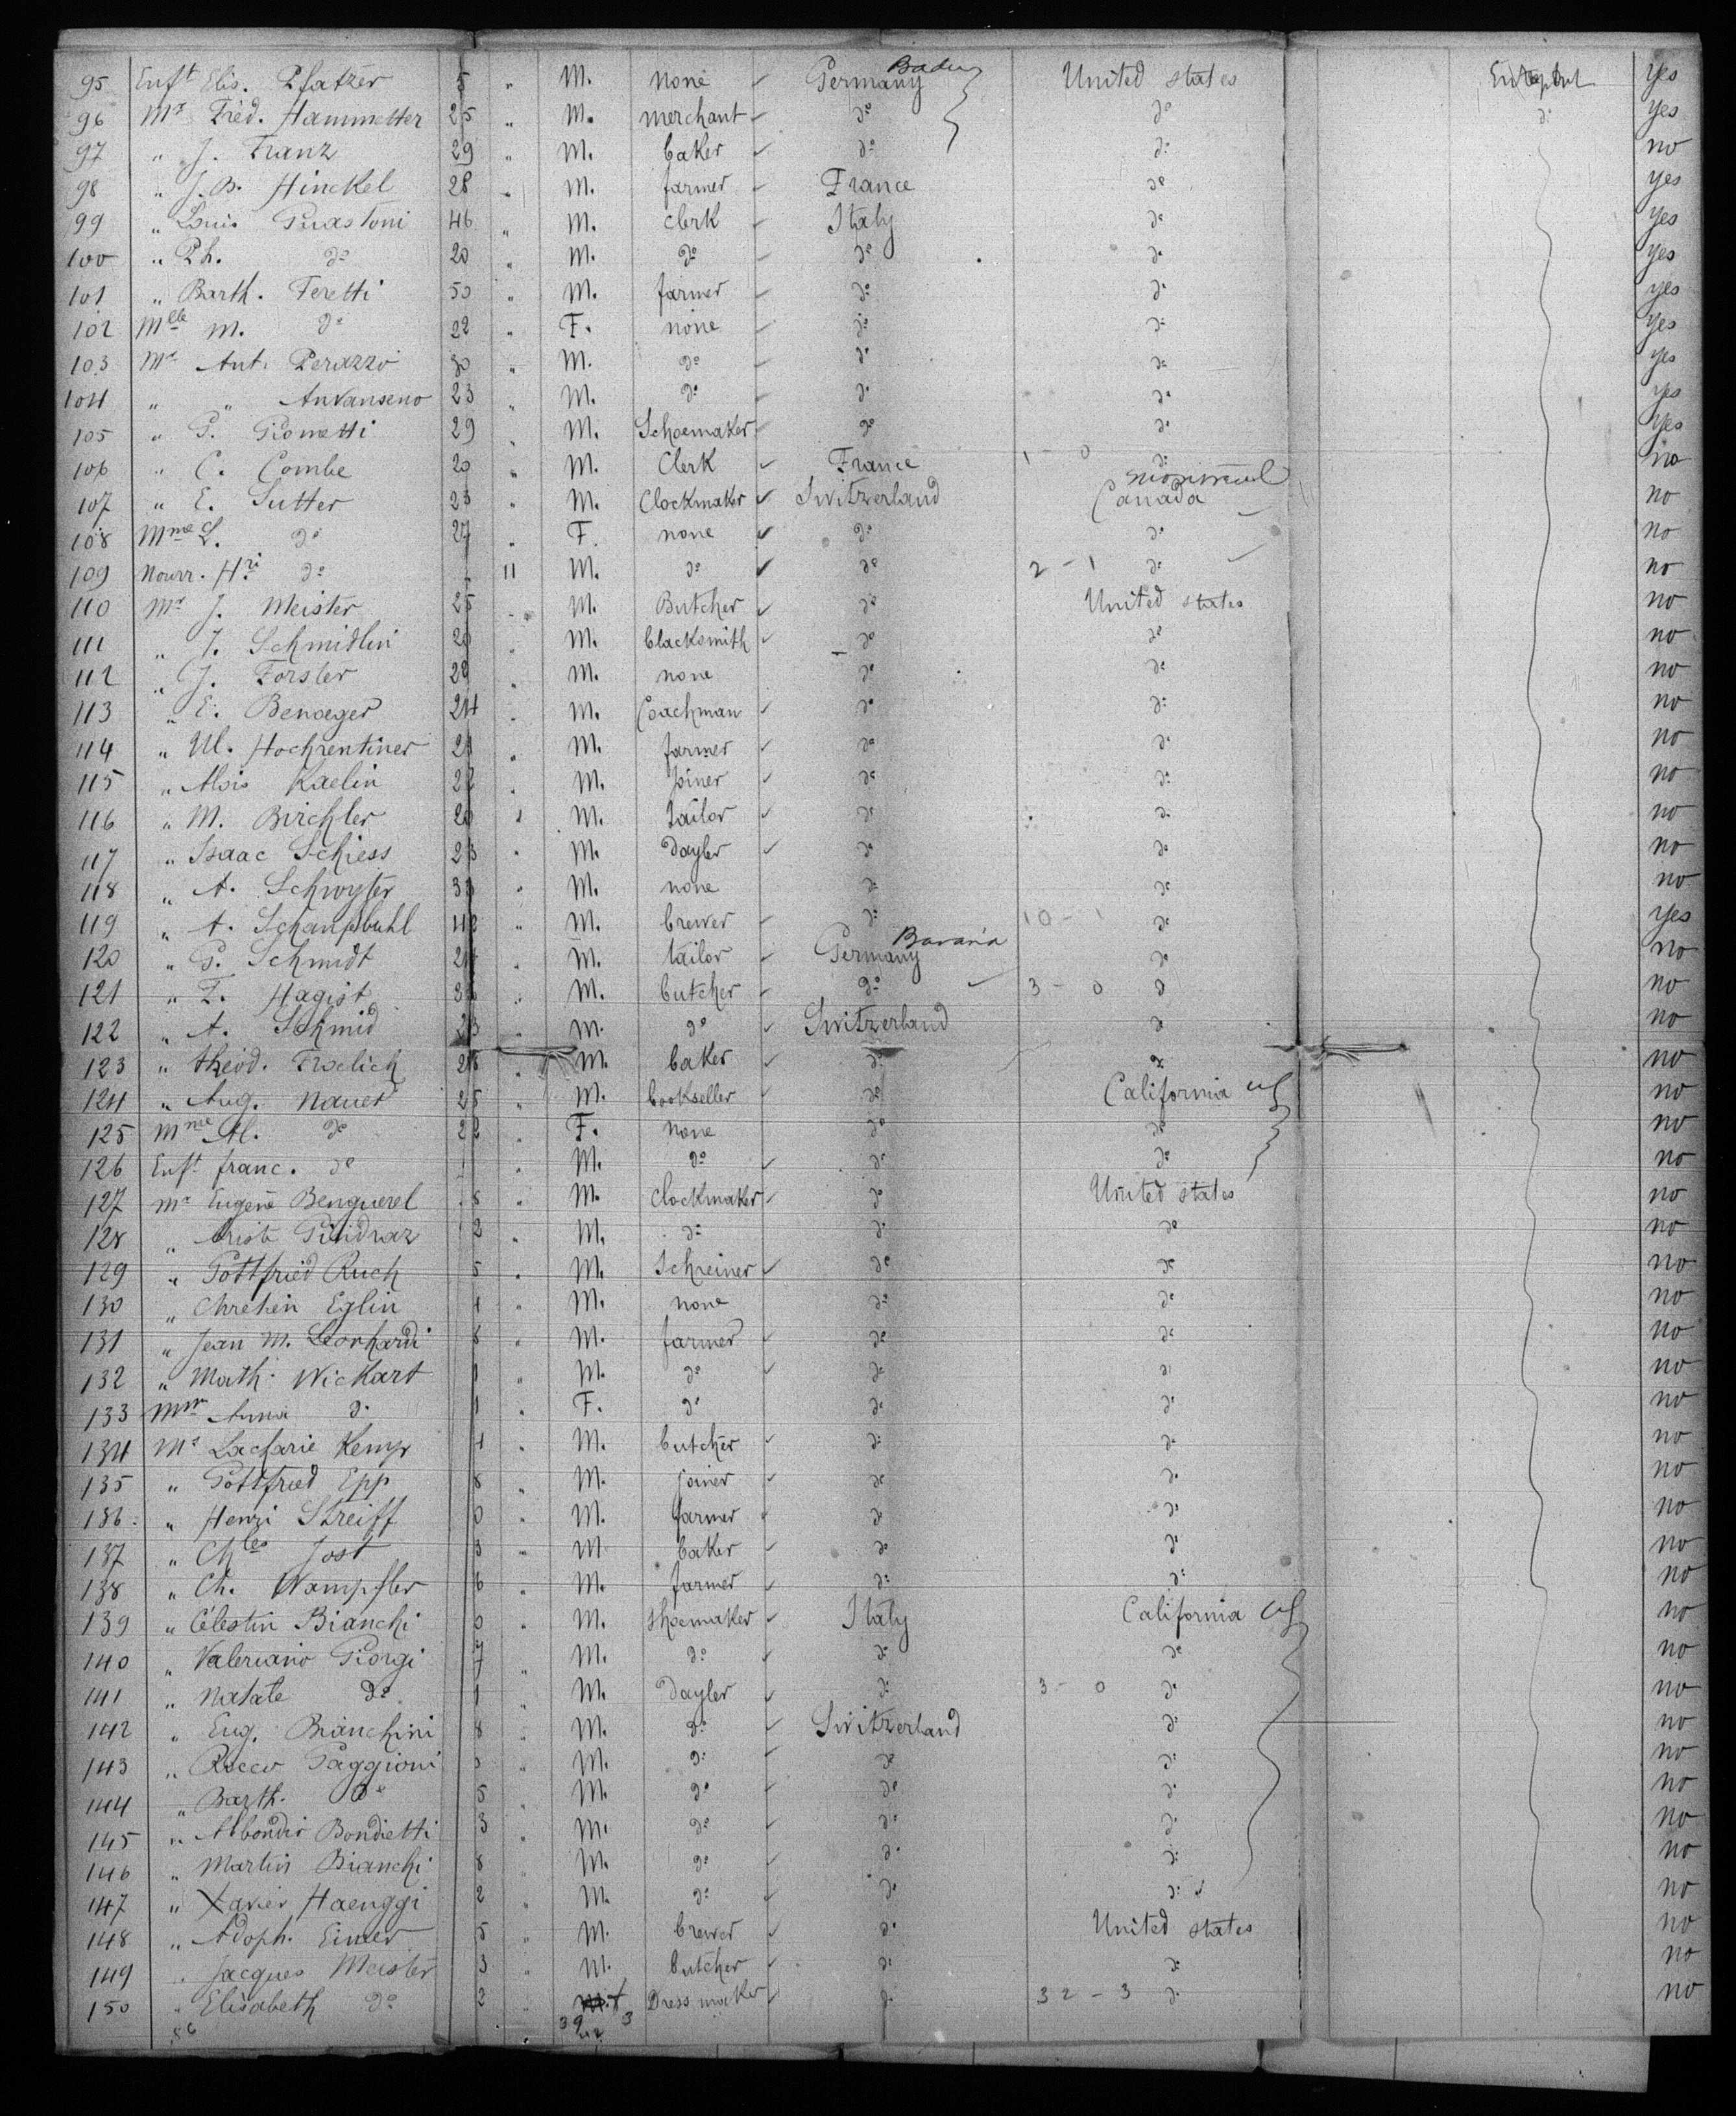 95 Enft Elis. Pfatzer 5 " M. none Germany Baden United states Entrepont yes
96 Mr Fréd. Hammetter 25 " M. merchant do do do yes
97 " J. Franz 29 " M. baker do do no
98 " J.B. Hinckel 28 " M. farmer France do yes
99 " Louis Guastoni 46 " M. clerk Italy do yes
100 " Ph. do 20 " M. do do do yes
101 " Barth. Feretti 50 " M. farmer do do yes
102 Melle M. do 22 " F. none do do yes
103 Mr Ant. Perazzo 30 " M. do do do yes
104 " " Anvanseno 23 " M. do do do yes
105 " G. Gionetti 29 " M. Schoemaker do do yes
106 " C. Combe 20 " M. Clerk France 1 - 0 do no
107 " E. Sutter 23 " M. Clockmaker Switzerland Canada no
108 Mme L. do 27 " F. none do do no
109 Nourr. Hri do 11 M. do do 2 - 1 do no
110 Mr J. Meister 25 " M. Butcher do United states no
111 " J. Schmidlin 20 " M. blacksmith do do no
112 " J. Forster 28 " M. none do do no
113 " E. Benoeger 24 " M. Coachman do do no
114 " Ul. Hochrentiner 21 " M. farmer do do no
115 " Alois Kaelin 22 " M. joiner do do no
116 " M. Birchler 20 " M. tailor do do no
117 " Isaac Schiess 23 " M. dayler do do no
118 " A. Schwyter 33 " M. none do do no
119 " A. Schaufsbuhl 42 " M. brewer do 10 - 1 do yes
120 " G. Schmidt 24 " M. tailor Germany Bavaria do no
121 " F. Hagist 36 " M. butcher do 3 - 0 do no
122 " A. Schmid 23 " M. do Switzerland do no
123 " théod. Froelich 28 " M. baker do do no
124 " Aug. Nauer 25 " M. bookseller do California no
125 Mme Al. do 22 " F. none do do no
126 Enft franc. do 1 " M. do do do no
127 Mr Eugène Benguerel 8 " M. clockmaker do United states no
128 " Arist Guidraz 2 " M. do do do no
129 " Gottfried Ruch 5 " M. Schreiner do do no
130 " Chretien Eglin 1 " M. none do do no
131 " Jean M. Leonhardi 8 " M. farmer do do no
132 " Math. Wickart 1 " M. do do do no
133 Mme Anna do 1 " F. do do do no
134 Mr Zacharie Kemp 1 " M. butcher do do no
135 " Gottfried Epp 8 " M. joiner do do no
136 " Henri Streiff 0 " M. farmer do do no
137 " Chles Jost 3 " M baker do do no
138 " Ch. Wampfler 6 " M. farmer do do no
139 " Célestin Bianchi 0 " M. shoemaker Italy California no
140 " Valeriano Giorgi 7 " M. do do do no
141 " Natale do 1 " M. dayler do 3 - 0 do no
142 " Eug. Bianchini 8 " M. do Switzerland do no
143 " Rocco Gaggioni 3 " M. do do do no
144 " Barth. do 5 " M. do do do no
145 " Abbondio Bondietti 3 " M. do do do no
146 " Martin Bianchi 8 " M. do do do no
147 " Xavier Haenggi 2 " M. do do do no
148 " Adoph. Eimer 5 " M. brewer do United states no
149 " Jacques Meister 3 " M. butcher do do no
150 " Elisabeth do 2 " f Dress maker do 32 - 3 do no
56